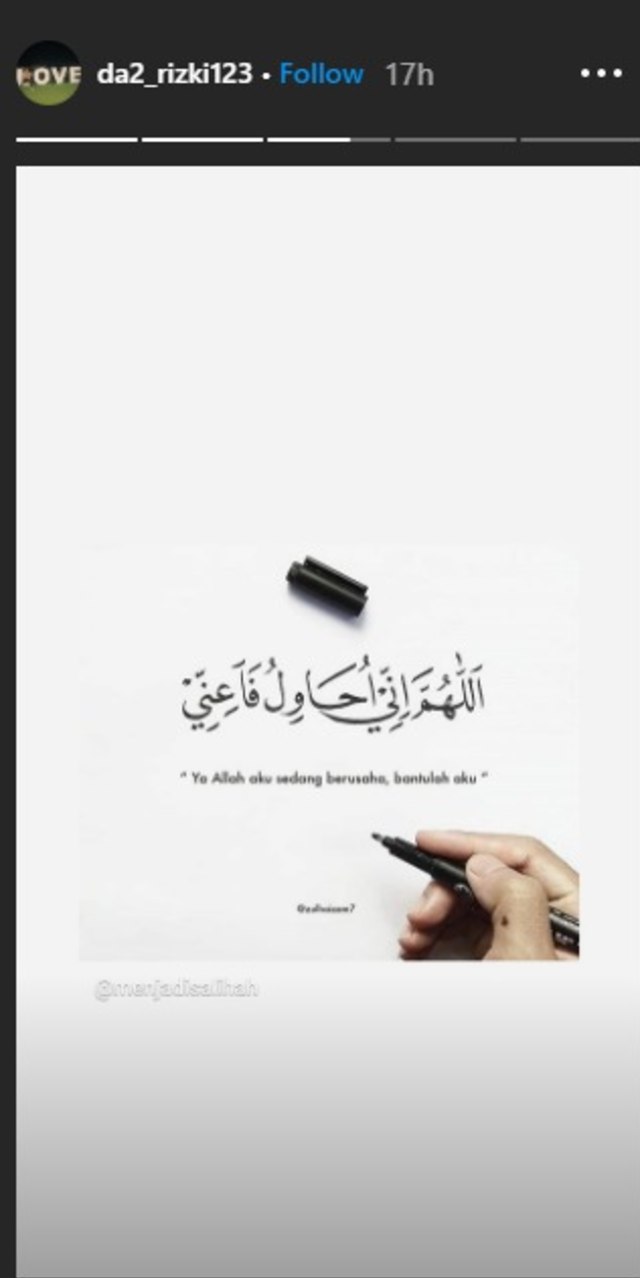 LOVE
da2_rizki123 • Follow 17h
اَللّٰهُمَّ اِنِّيْ اُحَاوِلُ فَاَعِنِّيْ
“ Ya Allah aku sedang berusaha, bantulah aku ”
@menjadisalihah